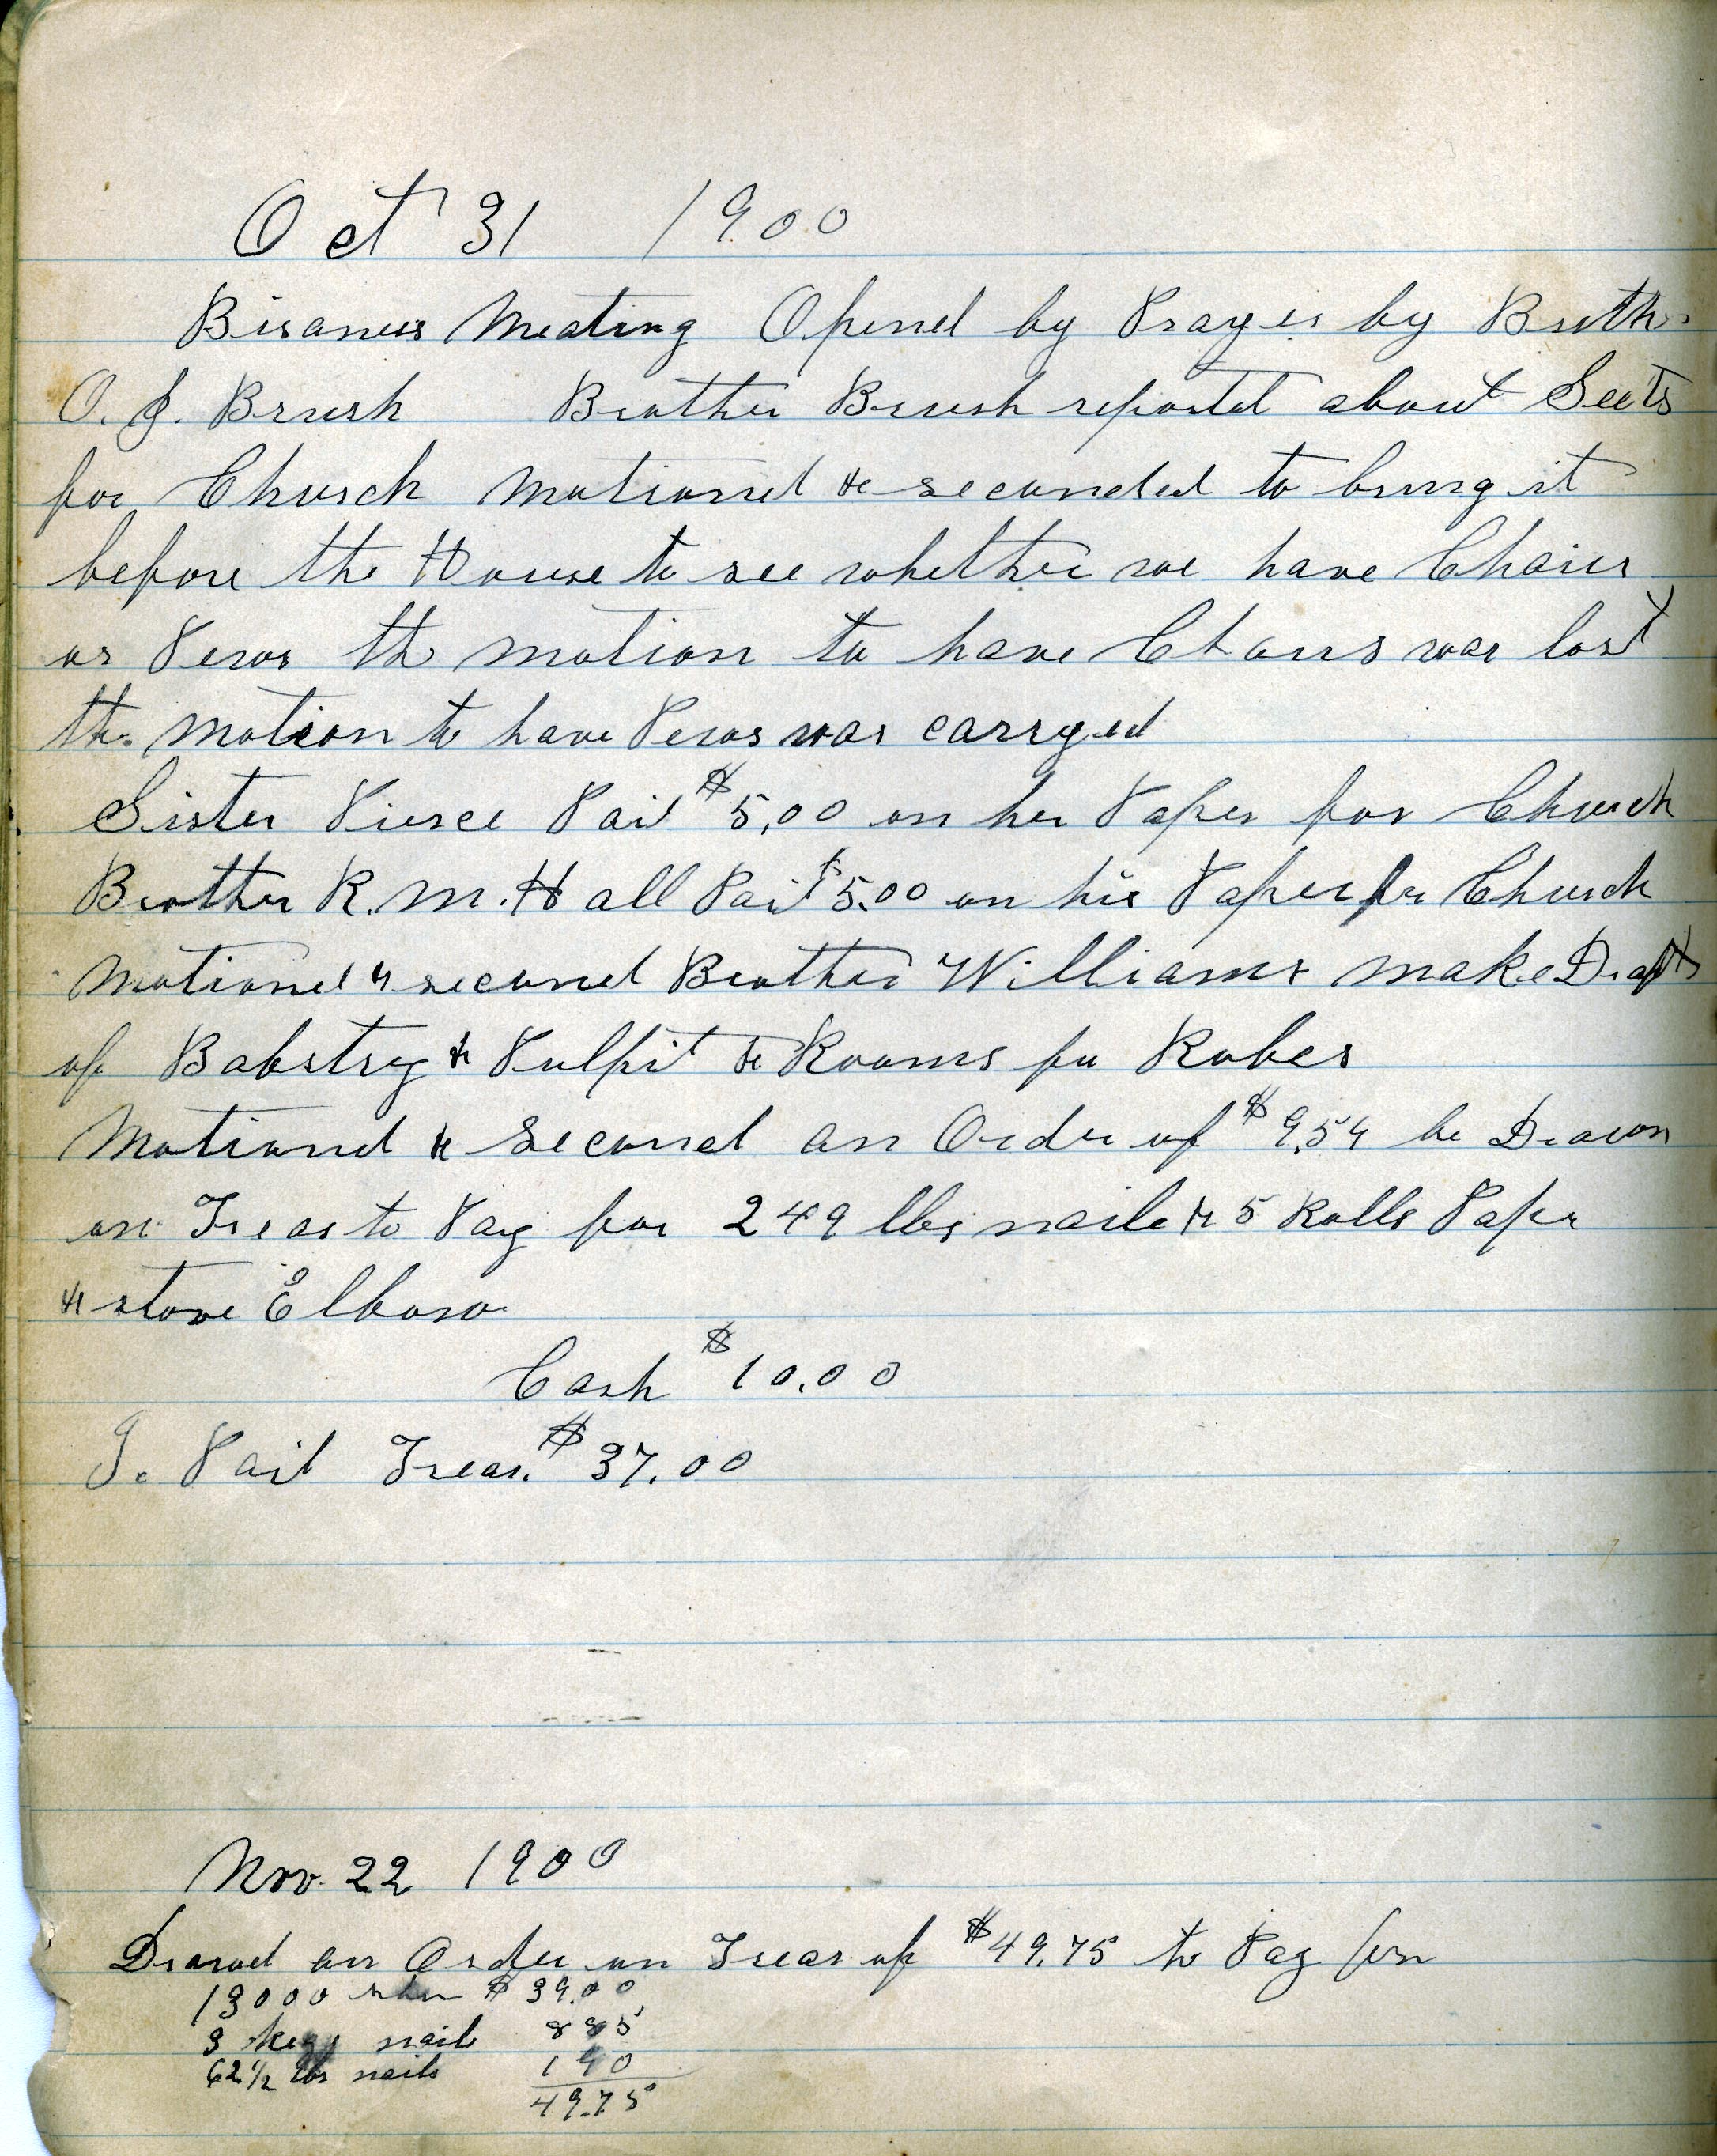 Oct 31 1900
Bisaness Meating Opend by Prayer by Brother
O. J. Brush Brother Brush reportet about Seets
for Church motioned & seconded to bring it
before the House to see whether we have Chairs
or Pews the motion to have Chairs was lost
the motion to have Pews was carryed
Sister Pierce Paid $5,00 on her Paper for Church
Brother R. M. Hall Paid $5.00 on his Paper for Church
Motioned & second Brother Williams make Drafts
of Babstry & Pulpit & Rooms for Robes
Motioned & Second an Order of $9,54 be Drawn
on Treas to Pay for 249 lbs nails & 5 Rolls Paper
& stove Elbow
Cash $10.00
J. Vail Treas. $37.00
Nov. 22 1900
Drawd an Order on Treas of $49.75 to Pay for
13000 $39.00
3 kegs nails 885
62 1/2 lbs nails 190
49.75